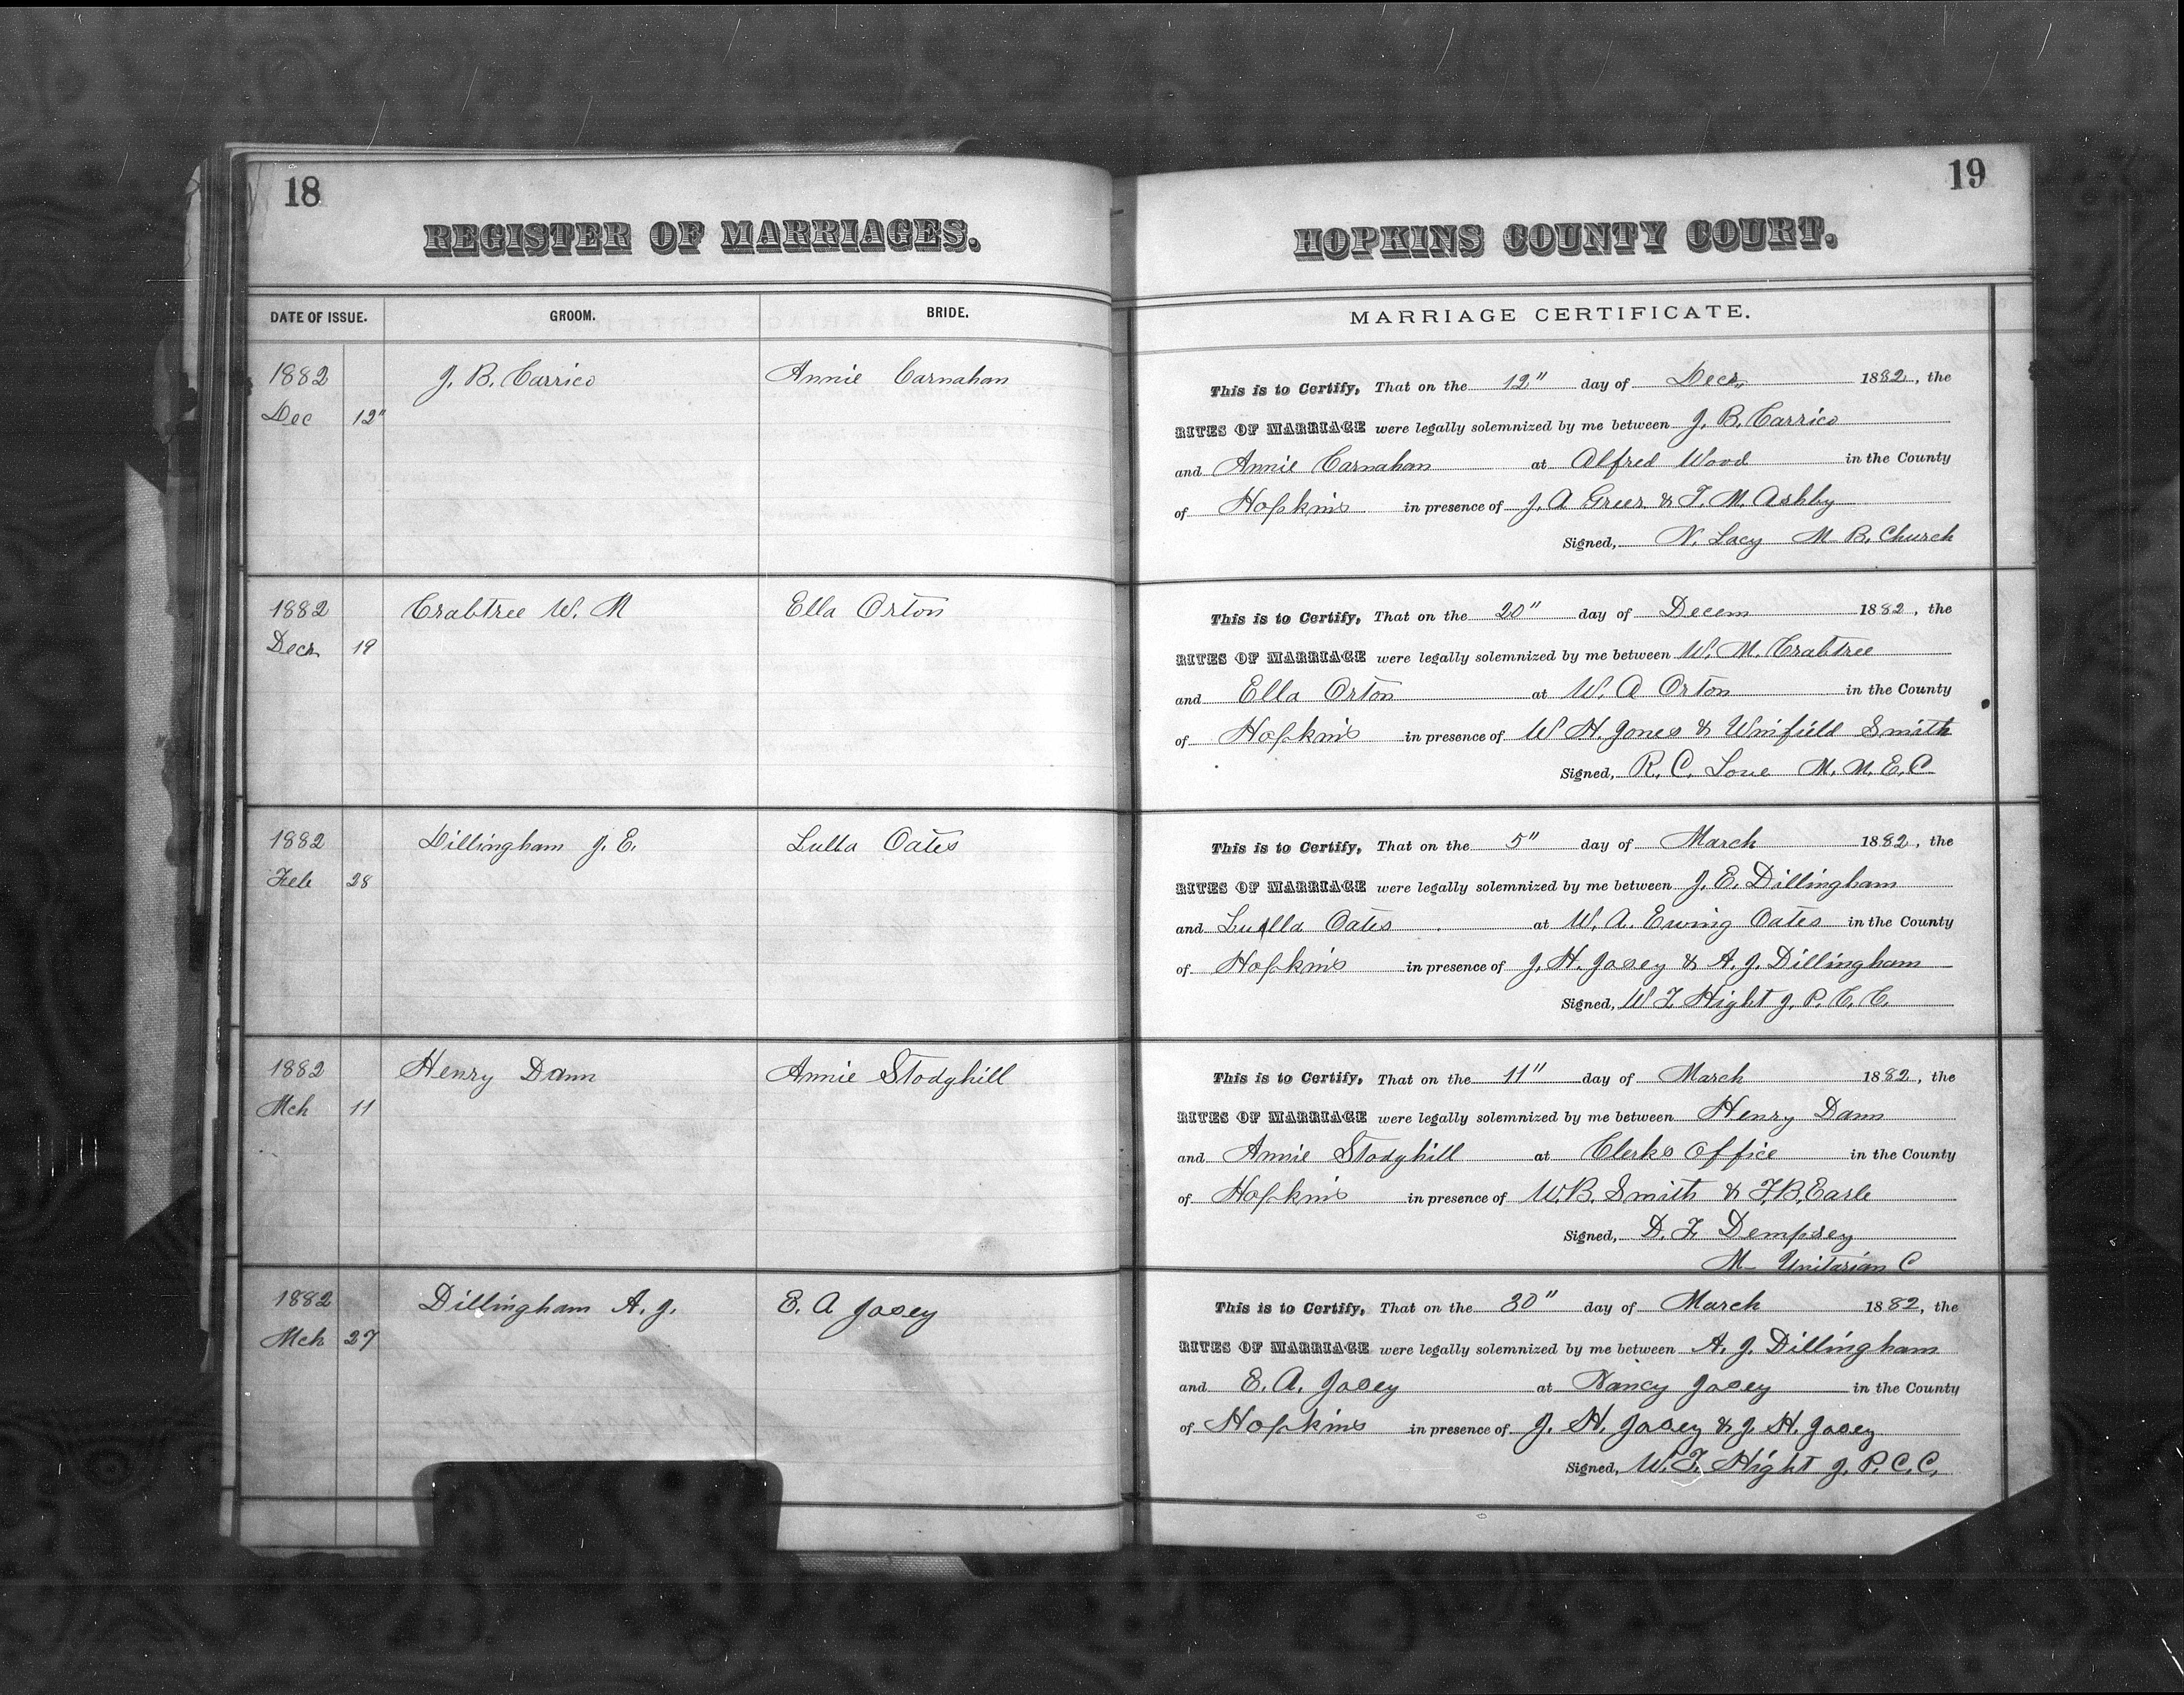 18
REGISTER OF MARRIAGES.
DATE OF ISSUE. GROOM. BRIDE.
1882 J. B. Carrico Annie Carnahan
Dec 12"
1882 Crabtree W. M Ella Orton
Decr 19
1882 Dillingham J. E. Lulla Oates
Feb 28
1882 Henry Dann Annie Stodghill
Mch 11
1882 Dillingham A. J. E. A Josey
Mch 27
19
HOPKINS COUNTY COURT.
MARRIAGE CERTIFICATE.
This is to Certify, That on the 12" day of Decr 1882, the
RITES OF MARRIAGE were legally solemnized by me between J. B. Carrico
and Annie Carnahan at Alfred Wood in the County
of Hopkins in presence of J. A Greer & T. M. Ashby
Signed, N. Lacy M B. Church
This is to Certify, That on the 20" day of Decem 1882, the
RITES OF MARRIAGE were legally solemnized by me between W. M. Crabtree
and Ella Orton at W. A Orton in the County
of Hopkins in presence of W H. Jones & Winfield Smith
Signed, R. C. Love M. M. E. C
This is to Certify, That on the 5" day of March 1882, the
RITES OF MARRIAGE were legally solemnized by me between J. E. Dillingham
and Luella Oates at W. A. Ewing Oates in the County
of Hopkins in presence of J. H. Josey & A. J. Dillingham
Signed, W F Hight J. P. C. C.
This is to Certify, That on the 11" day of March 1882, the
RITES OF MARRIAGE were legally solemnized by me between Henry Dann
and Annie Stodghill at Clerks Office in the County
of Hopkins in presence of W. B. Smith & F. B. Earle
Signed, D. F Dempsey
M Unitarian C
This is to Certify, That on the 30" day of March 1882, the
RITES OF MARRIAGE were legally solemnized by me between A. J. Dillingham
and E. A. Josey at Nancy Josey in the County
of Hopkins in presence of J. H. Josey & J. H. Josey
Signed, W. F. Hight J. P. C. C.